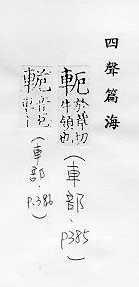 四聲篇海
軛
於革切
牛領也
(車部.p385)
(車部.p.386)